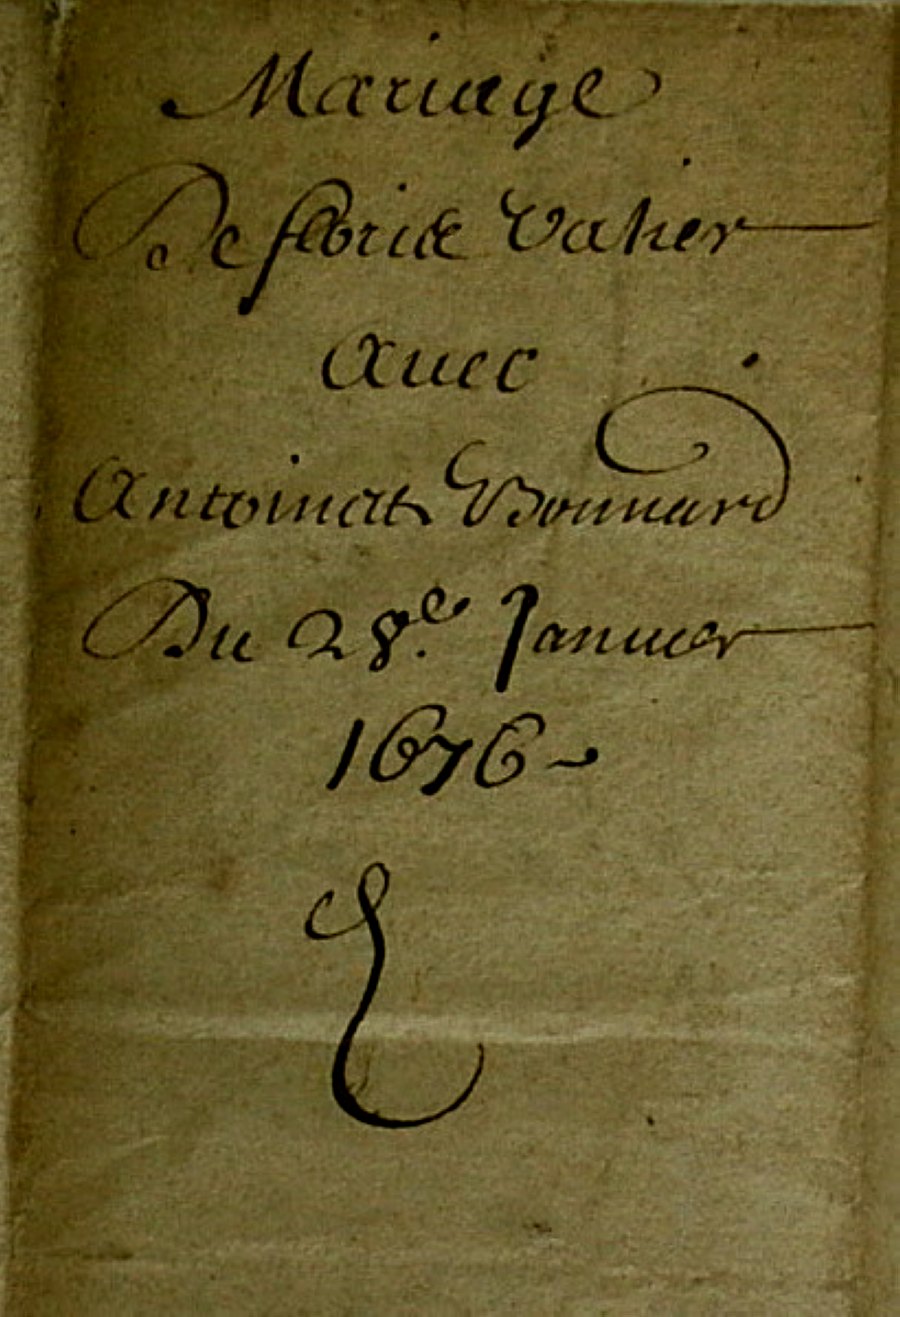 Mariage
De florie Vatier
auec
Antoinat Bonnard
Du 28.e Januier
1676